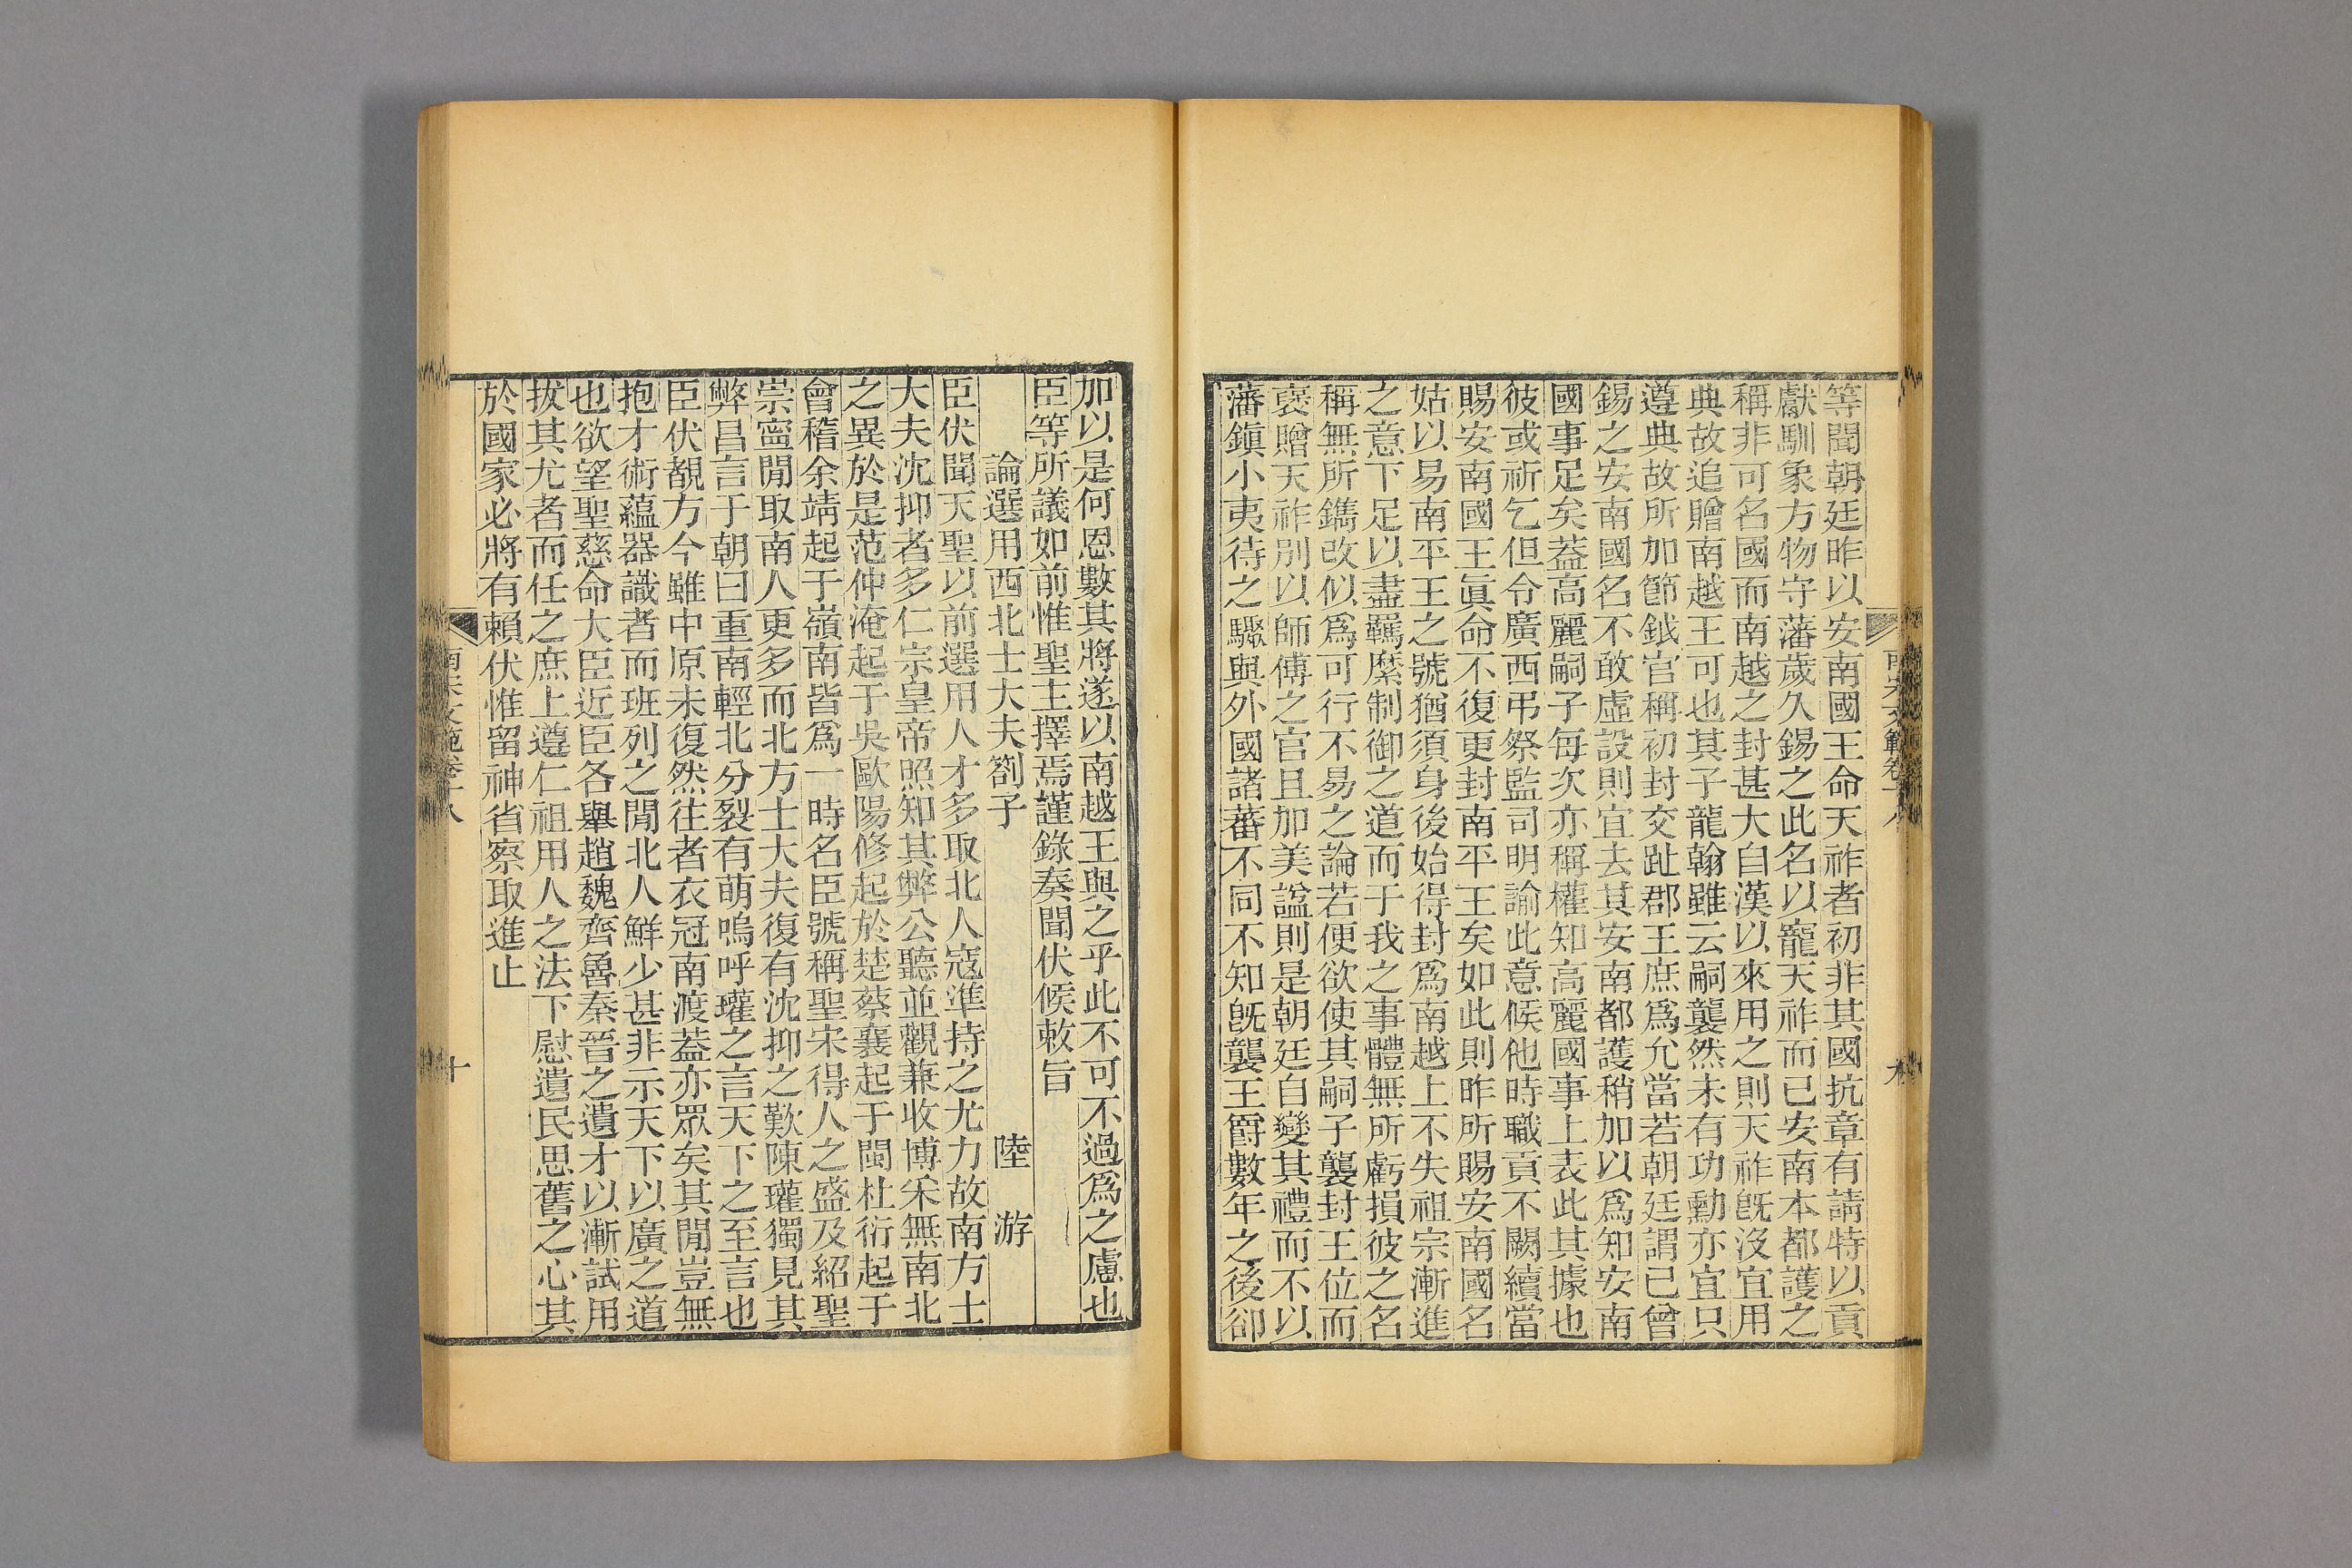 等聞朝廷昨以安南國王命天祚者初非其國抗章有請特以貢
獻馴象方物守藩歲久錫之此名以寵天祚而已安南本都護之
稱非可名國而南越之封甚大自漢以來用之則天祚旣沒宜用
典故追贈南越王可也其子龍翰雖云嗣襲然未有功勳亦宜只
遵典故所加節鉞官稱初封交趾郡王庶爲允當若朝廷謂已曾
錫之安南國名不敢虛設則宜去其安南都護稍加以爲知安南
國事足矣葢高麗嗣子每次亦稱權知高麗國事上表此其據也
彼或祈乞但令廣西弔祭監司明諭此意候他時職貢不闕續當
賜安南國王眞命不復更封南平王矣如此則昨所賜安南國名
姑以易南平王之號猶須身後始得封爲南越上不失祖宗漸進
之意下足以盡羈縻制御之道而于我之事體無所虧損彼之名
稱無所鐫改似爲可行不易之論若便欲使其嗣子襲封王位而
褒贈天祚別以師傅之官且加美諡則是朝廷自變其禮而不以
藩鎭小夷待之驟與外國諸蕃不同不知旣襲王爵數年之後卻
南宋文範卷十八
九
加以是何恩數其將遂以南越王與之乎此不可不過爲之慮也
臣等所議如前惟聖主擇焉謹錄奏聞伏候敕旨
論選用西北士大夫劄子 陸游
臣伏聞天聖以前選用人才多取北人寇準持之尤力故南方士
大夫沈抑者多仁宗皇帝照知其弊公聽並觀兼收博采無南北
之異於是范仲淹起于吳歐陽修起於楚蔡襄起于閩杜衍起于
會稽余靖起于嶺南皆爲一時名臣號稱聖宋得人之盛及紹聖
崇寍閒取南人更多而北方士大夫復有沈抑之歎陳瓘獨見其
弊昌言于朝曰重南輕北分裂有萌嗚呼瓘之言天下之至言也
臣伏覩方今雖中原未復然往者衣冠南渡葢亦眾矣其閒豈無
抱才術蘊器識者而班列之閒北人鮮少甚非示天下以廣之道
也欲望聖慈命大臣近臣各舉趙魏齊魯秦晉之遺才以漸試用
拔其尤者而任之庶上遵仁祖用人之法下慰遺民思舊之心其
於國家必將有賴伏惟留神省察取進止
南宋文範卷十八
十